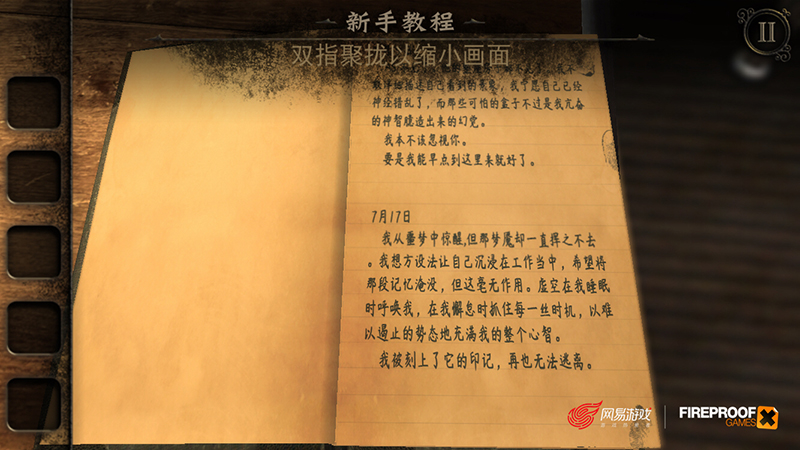 新手教程
双指聚拢以缩小画面
II
神经错乱了，而那些可怕的盒子不过是我亢奋
的神智臆造出来的幻觉。
我本不该忽视你。
要是我能早点到这里来就好了。
7月17日
我从噩梦中惊醒,但那梦魇却一直挥之不去
。我想方设法让自己沉浸在工作当中，希望将
那段记忆淹没，但这毫无作用。虚空在我睡眠
时呼唤我，在我懈怠时抓住每一丝时机，以难
以遏止的势态地充满我的整个心智。
我被刻上了它的印记，再也无法逃离。
网易游戏
FIREPROOF
GAMES